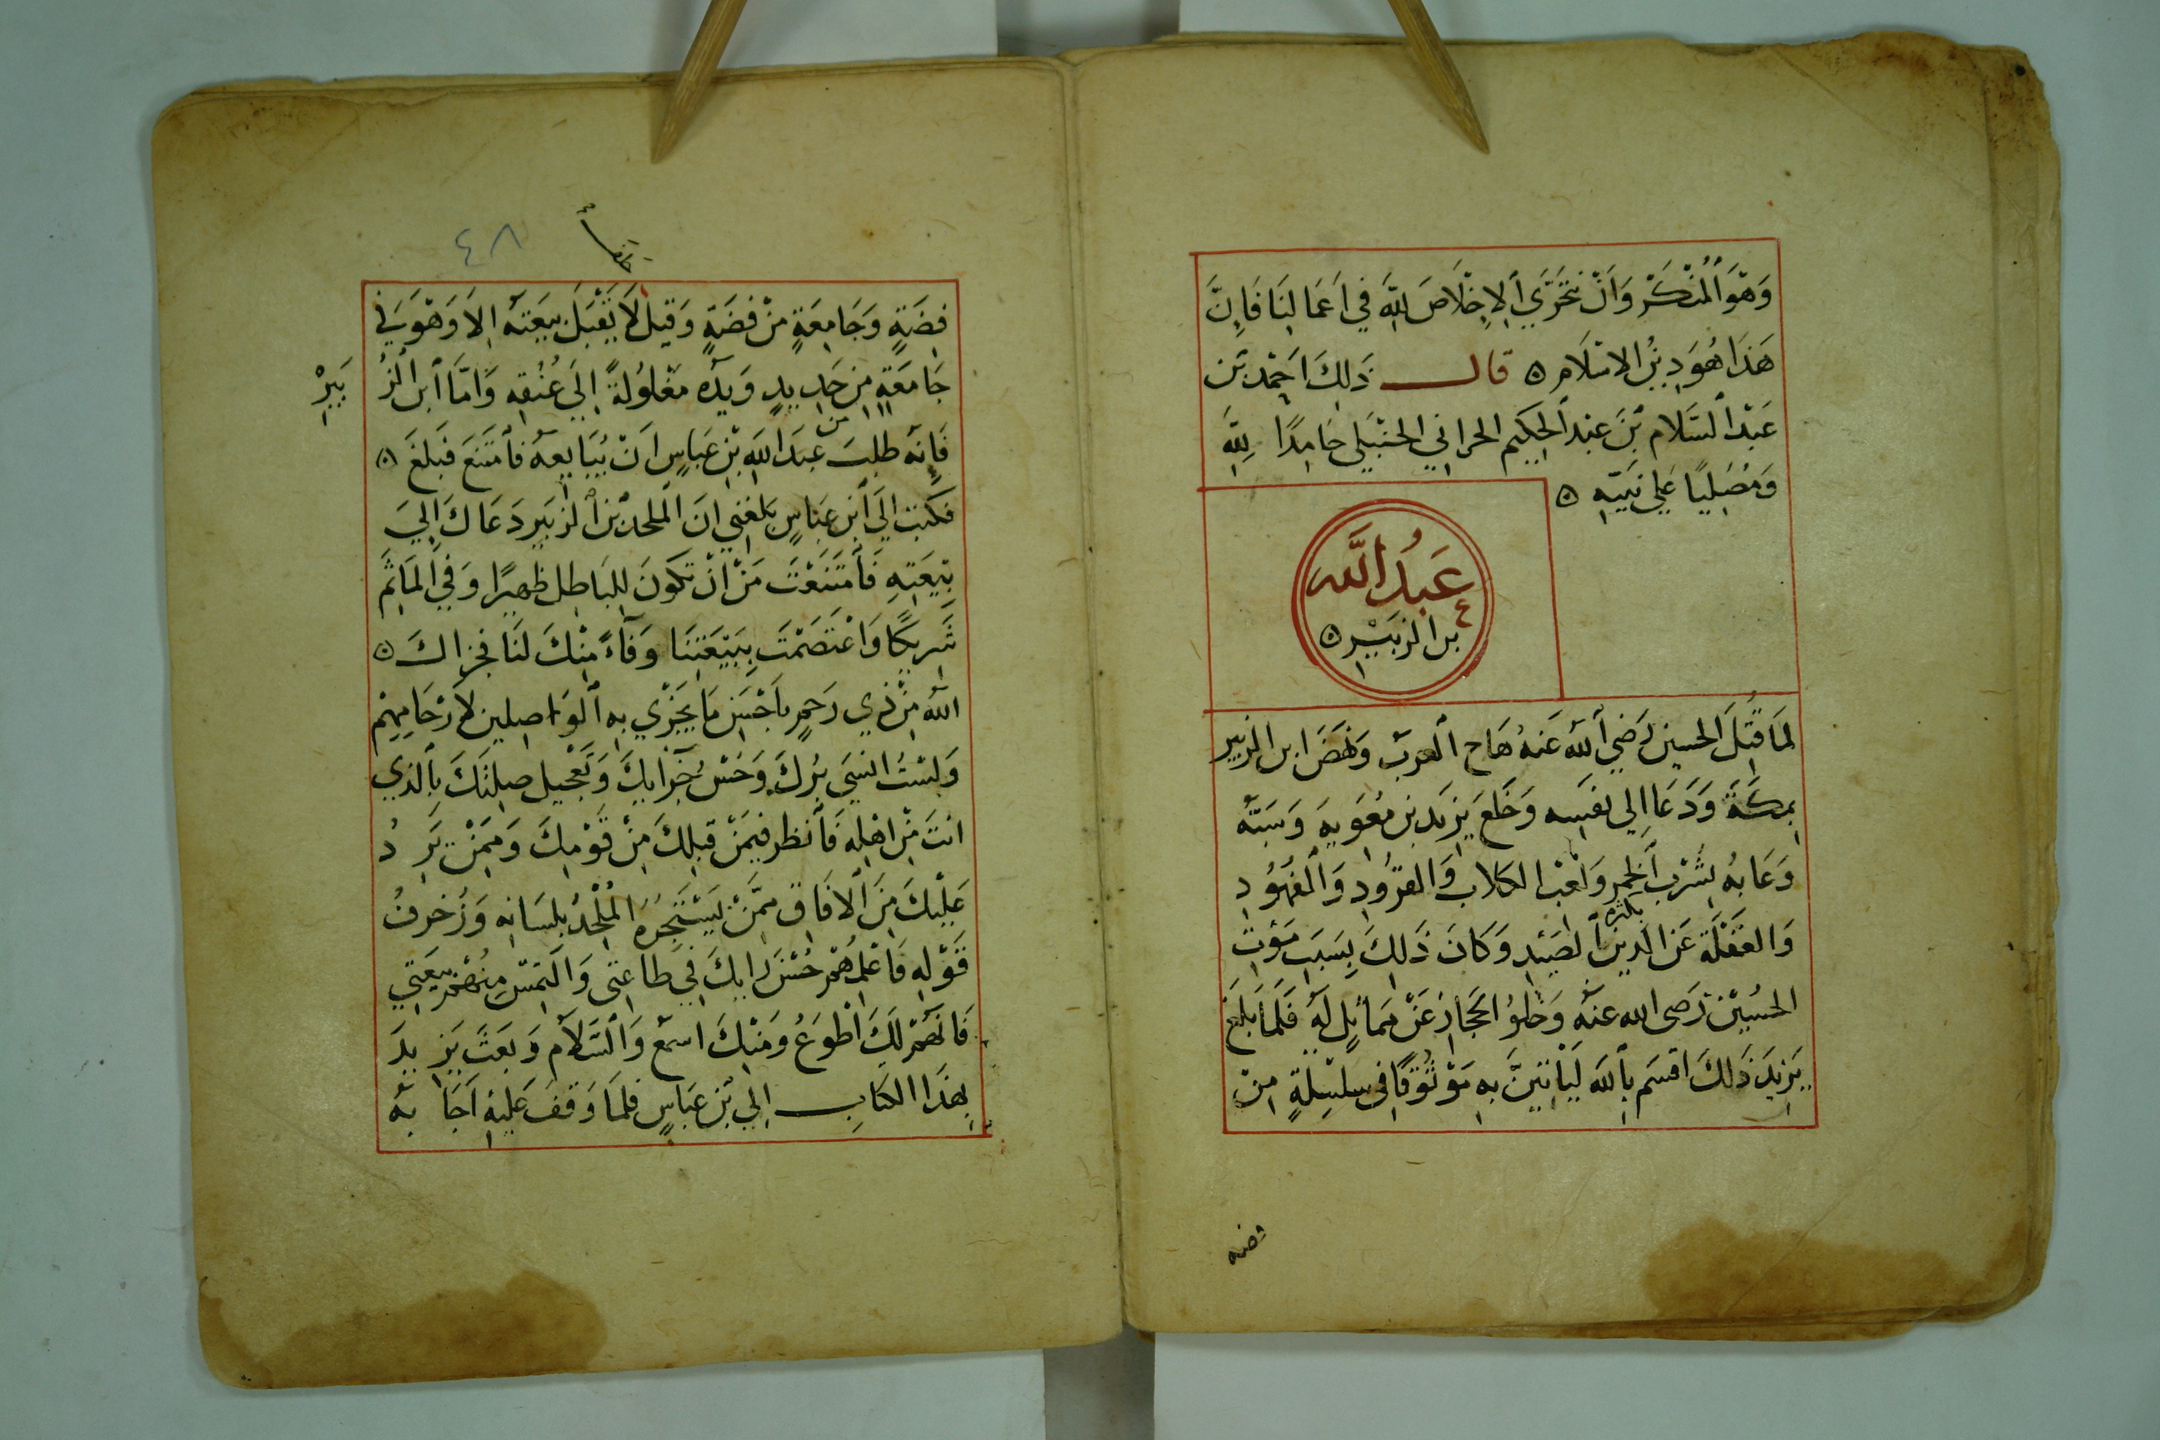 وَهْوَ ٱلمُنْكَرْ وَاَنْ نتَحَرَّي ٱلاِخْلَاصَ لِلَّهِ في اَعَمَالِنَا فَاِنَّ
هَذَا هُوَ دِينُ الاسْلَام ۞ قال ذَلِكَ اَحمْد بْن
عَبْد ٱلسَّلام بْنَ عبْد ٱلحَكيم الحراني الحنْبَلي حَامِدًا لِلَّهِ
وَمُصَلِيًا عَلي نَبِيّهِ ۞
عَبدُ اللَّه
بن الزبَيْر ۞
لمَا قُتِلَ الحسين رَضي ٱلله عَنهُ هَاج ٱلعرَبْ وَنهَضَ ابن الزبير
بمكَةَ وَدَعَا اِلي نفسِه وَخَلَعَ يزيد بن مُعَويه وَسَبّهُ
وَعَابهُ بشُرْب ٱلخمر وَلعْب الكلاب وَالقرُود وَٱلفهُود
وَالغفْلَة عَن الدين بكثره ٱلصَيْد وَكانَ ذَلِكَ بِسَبَب مَوْت
الحُسَيْن رَضي الله عنهُ وَخلوُ الحجاز عَنْ مماثِل لهُ فَلَمَا بَلَغَ
يَزيدَ ذَلكَ اقسَم بٱللَه لَيَأتِيَنَّ بهِ مَوْثُوقًا في سلسِلةٍ منْ
فضه
٤٨
فِضَةٍ وَجَامِعَةٍ منْ فِضَةٍ وَقيل لاَ يَقْبَلَ بيعَتهُ اِلاَ وَهْوَ في
جَامعَةٍ مِن حَدِيدٍ وَيدُه مَغلوُلةً اِلَي عُنُقِهِ وَامَّا ٱبن ٱلزُ
بَيرْ
فَاِنهُ طلبَ من عبَدَ اللَه بْن عَبَاسٍ اَنْ يُبَايعهُ فٱمتَنعَ فَبلغَ ۞
فكتبَ اِلَي ٱبن عبَاسٍ بَلغني انَ ٱلملحد بْن ٱلزبَير دَعَاكَ اِلَي
بيْعَتهِ فَٱمْتَنَعْتَ مَنْ انْ تكونَ لِلبَاطِل ظهيرًا وَفي ٱلمَاثم
شَريكًا وَاعْتَصَمْتَ بِبَيْعَتِنَا وَفَآءً مِنْكَ لَنَا فجزاكَ ۞
ٱللَه مِنْ ذي رَحمٍ بٱحْسَن مَا يجَزْي بهِ ٱلوَاصِلين لاَرْحَامِهِمْ
وَلسْتُ انسَي بِرُكَ وَحُسْنُ جَزَايكَ وَتَعْجيل صِلَتكَ بٱلذي
انتَ مْن اهْلِهِ فَٱنظر فيمَنْ قِبلِكَ مِنْ قَوْمِكَ وَممَنْ يَرِدُ
عَليْكَ مِنَ ٱلافَاق مِمَّنْ يَسْتَحِرُهُ المُلْحِدُ بِلسَانهِ وَزُخرفُ
قَوْلِهِ فَاعْلِمهُمْ حُسْنَ رَايِكَ في طَاعَتى وَالتمَسْ مِنهُمْ بيعَتي
فَانهَّمْ لَكَ اطْوَعُ وَمِنْكَ اسمَع وَٱلسَّلاَم وَبعَثَ يَزيدَ
بِهَذَا الكتَابِ اِلي بْن عَبَاسٍ فلَمَا وَقفَ عَليْهِ اَجَابهُ